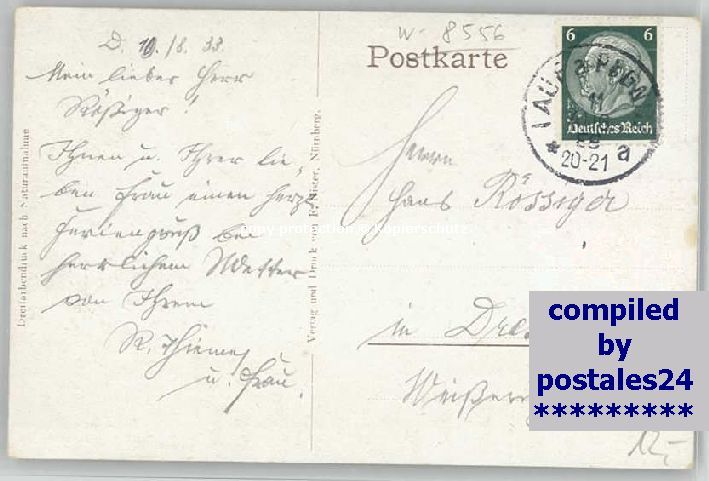 W-8556
Postkarte
D. 10/8. 33.
Mein lieber Herr
Rößiger!
Ihnen u. Ihrer lie-
ben Frau einen herzl.
Feriengruß bei
herrlichem Wetter
von Ihrem
R. Thieme
u. Frau.
Dreifarbendruck nach Naturaufnahme
Verlag und Druck von E. Nister, Nürnberg.
copy-protection © kopierschutz
6 6
Deutsches Reich
11
20-21 a
Herrn
Hans Rössiger
in
compiled
by
postales24
*********
12,-